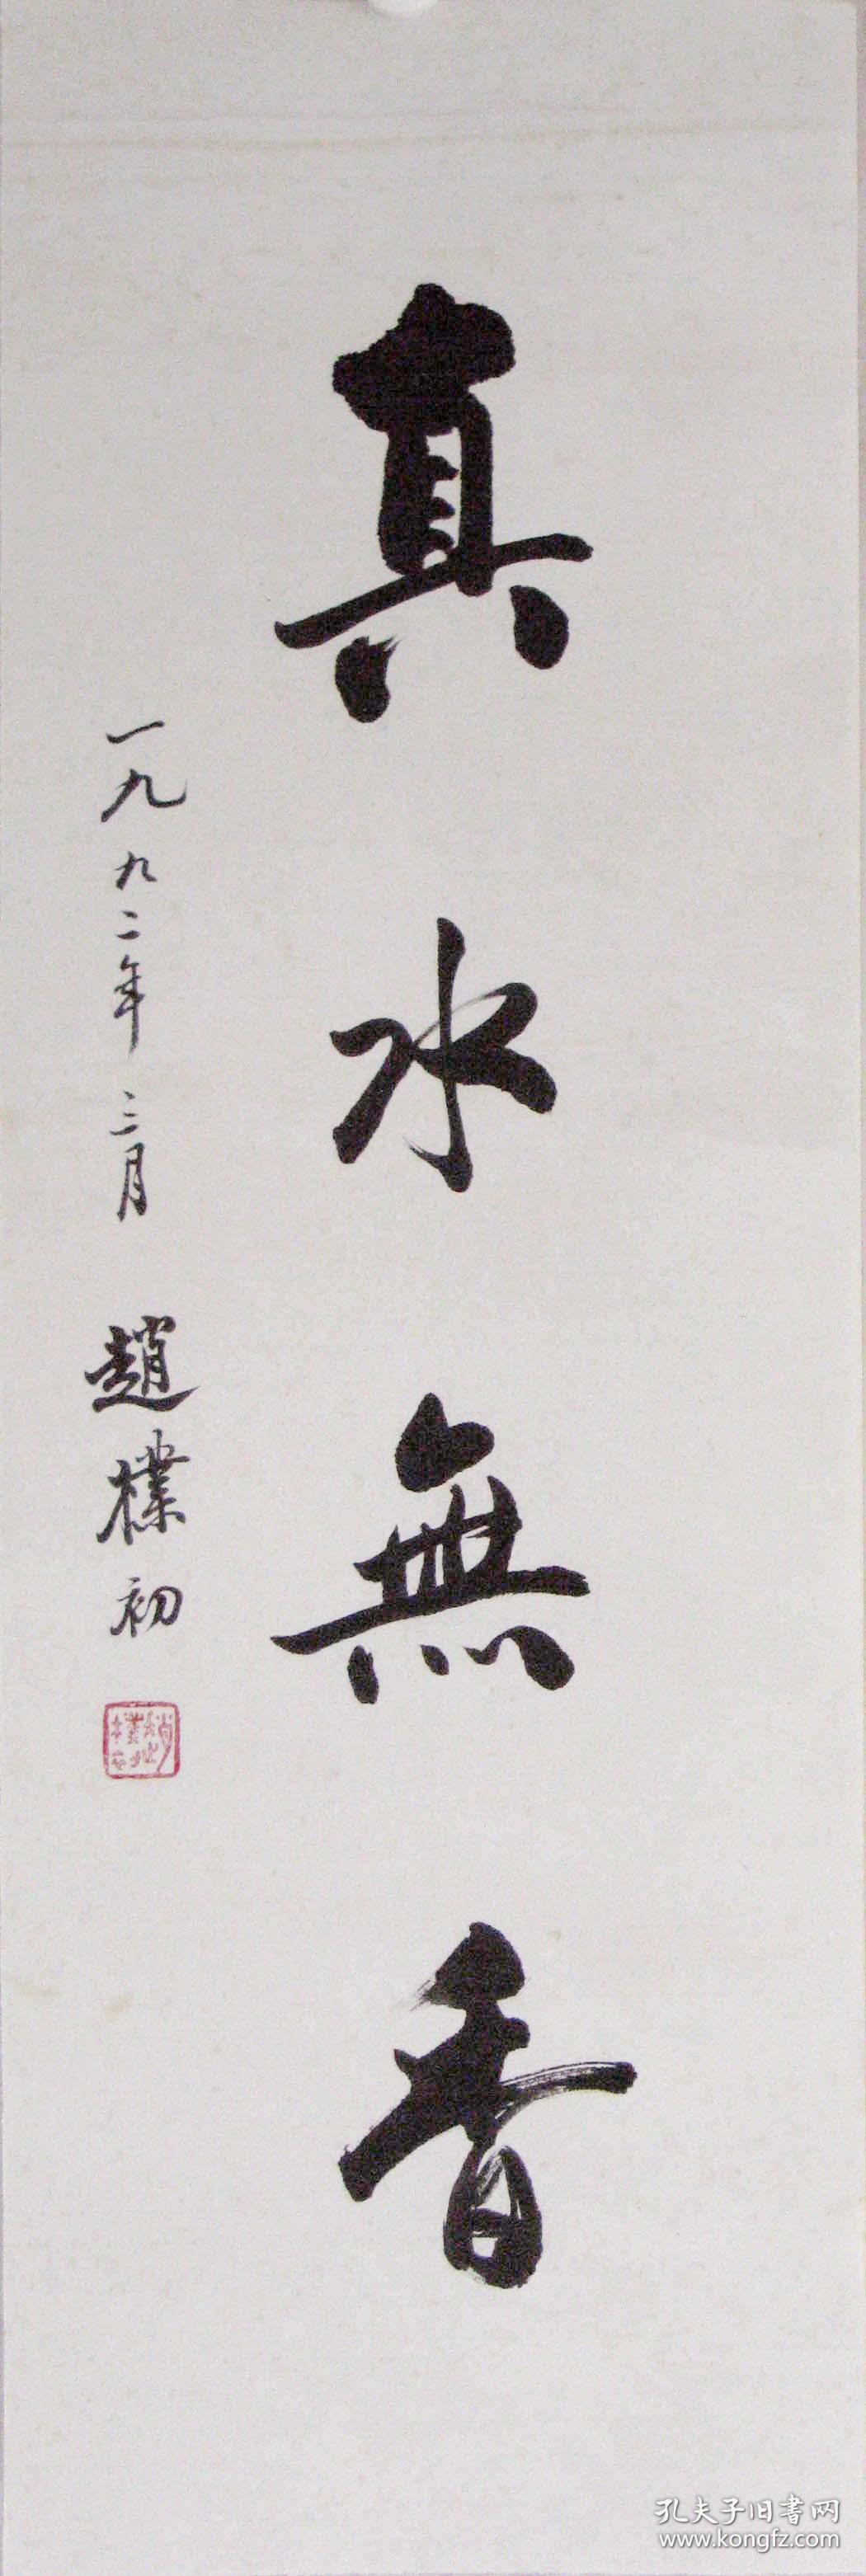 真水無香
一九九二年三月 趙樸初
孔夫子旧書网
www.kongfz.com